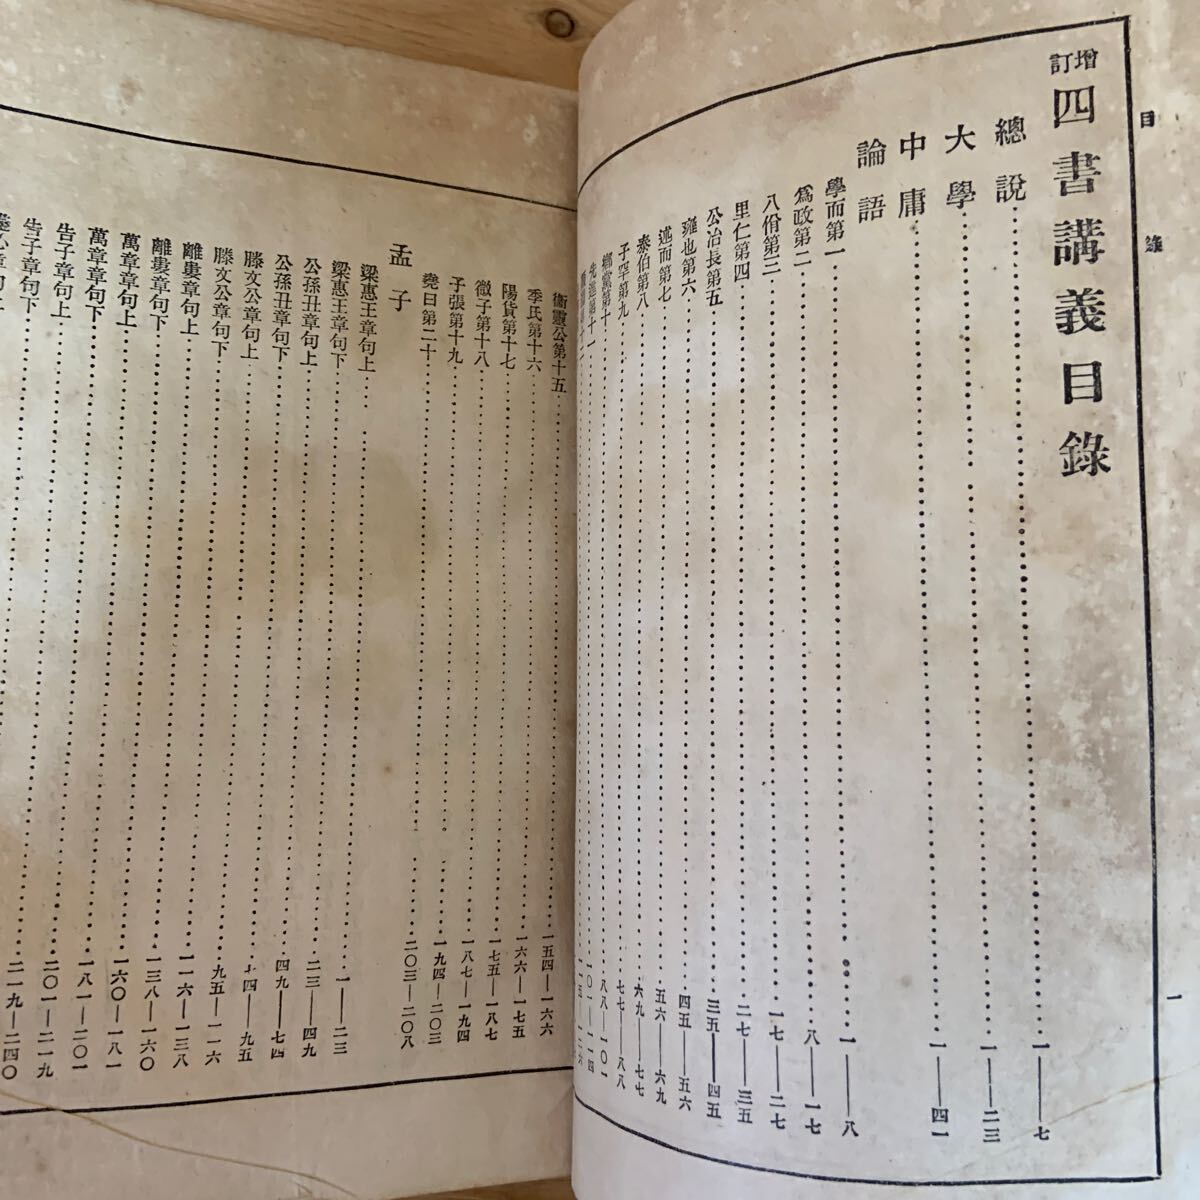 目錄
增訂四書講義目錄
總說……一——七
大學……一——二三
中庸……一——四一
論語
學而第一……一——八
爲政第二……八——一七
八佾第三……一七——二七
里仁第四……二七——三五
公冶長第五……三五——四五
雍也第六……四五——五六
述而第七……五六——六九
泰伯第八……六九——七七
子罕第九……七七——八八
鄉黨第十……八八——一〇一
先進第十一……一〇一——一一四
一
衞靈公第十五……一五四——一六六
季氏第十六……一六六——一七五
陽貨第十七……一七五——一八七
微子第十八……一八七——一九四
子張第十九……一九四——二〇三
堯曰第二十……二〇三——二〇八
孟子
梁惠王章句上……一——二三
梁惠王章句下……二三——四九
公孫丑章句上……四九——七四
公孫丑章句下……七四——九五
滕文公章句上……九五——一一六
滕文公章句下……一一六——一三八
離婁章句上……一三八——一六〇
離婁章句下……一六〇——一八一
萬章章句上……一八一——二〇一
萬章章句下……二〇一——二一九
告子章句上……二一九——二四〇
告子章句下